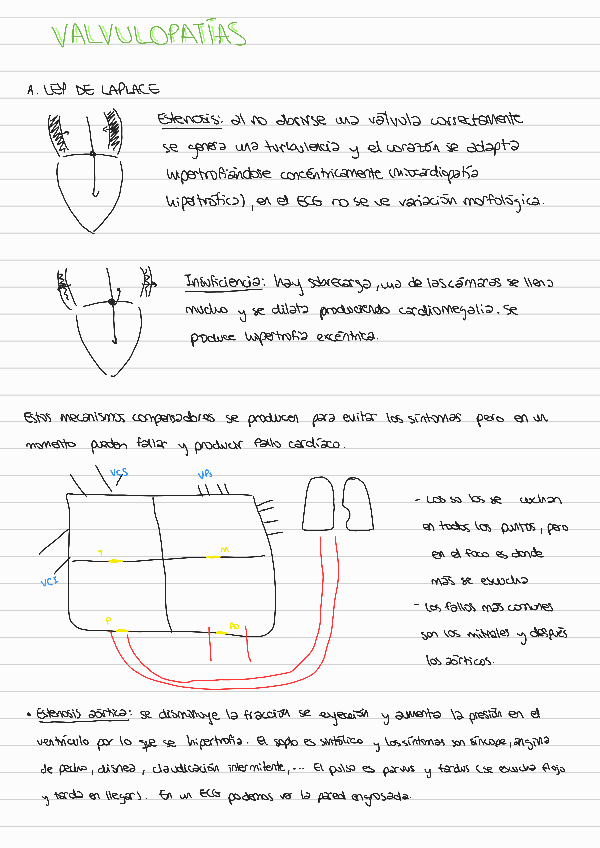 VALVULOPATÍAS
A. LEY DE LAPLACE
Estenosis: al no abrirse una válvula correctamente
se genera una turbulencia y el corazón se adapta
hipertrofiándose concéntricamente (miocardiopatía
hipertrófica), en el ECG no se ve variación morfológica.
Insuficiencia: hay sobrecarga, una de las cámaras se llena
mucho y se dilata produciendo cardiomegalia. Se
produce hipertrofia excéntrica.
Estos mecanismos compensadores se producen para evitar los síntomas pero en un
momento pueden fallar y producir fallo cardíaco.
VCS
VPs
T
M
VCI
P
AO
- Los so los se cuchan
en todos los puntos, pero
en el foco es donde
más se escucha
- Los fallos más comunes
son los mitrales y después
los aórticos.
• Estenosis aórtica: se disminuye la fracción se eyección y aumenta la presión en el
ventrículo por lo que se hipertrofia. El soplo es sistólico y los síntomas son síncope, angina
de pecho, disnea, claudicación intermitente,... El pulso es parvus y tardus (se escucha flojo
y tarda en llegar). En un ECG podemos ver la pared engrosada.